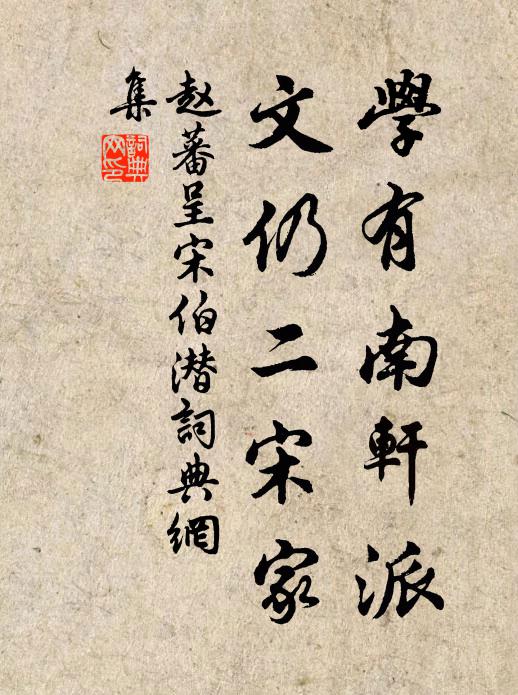 學有南軒派
文仍二宋家
赵蕃呈宋伯潛詞典網
集
詞典
网印